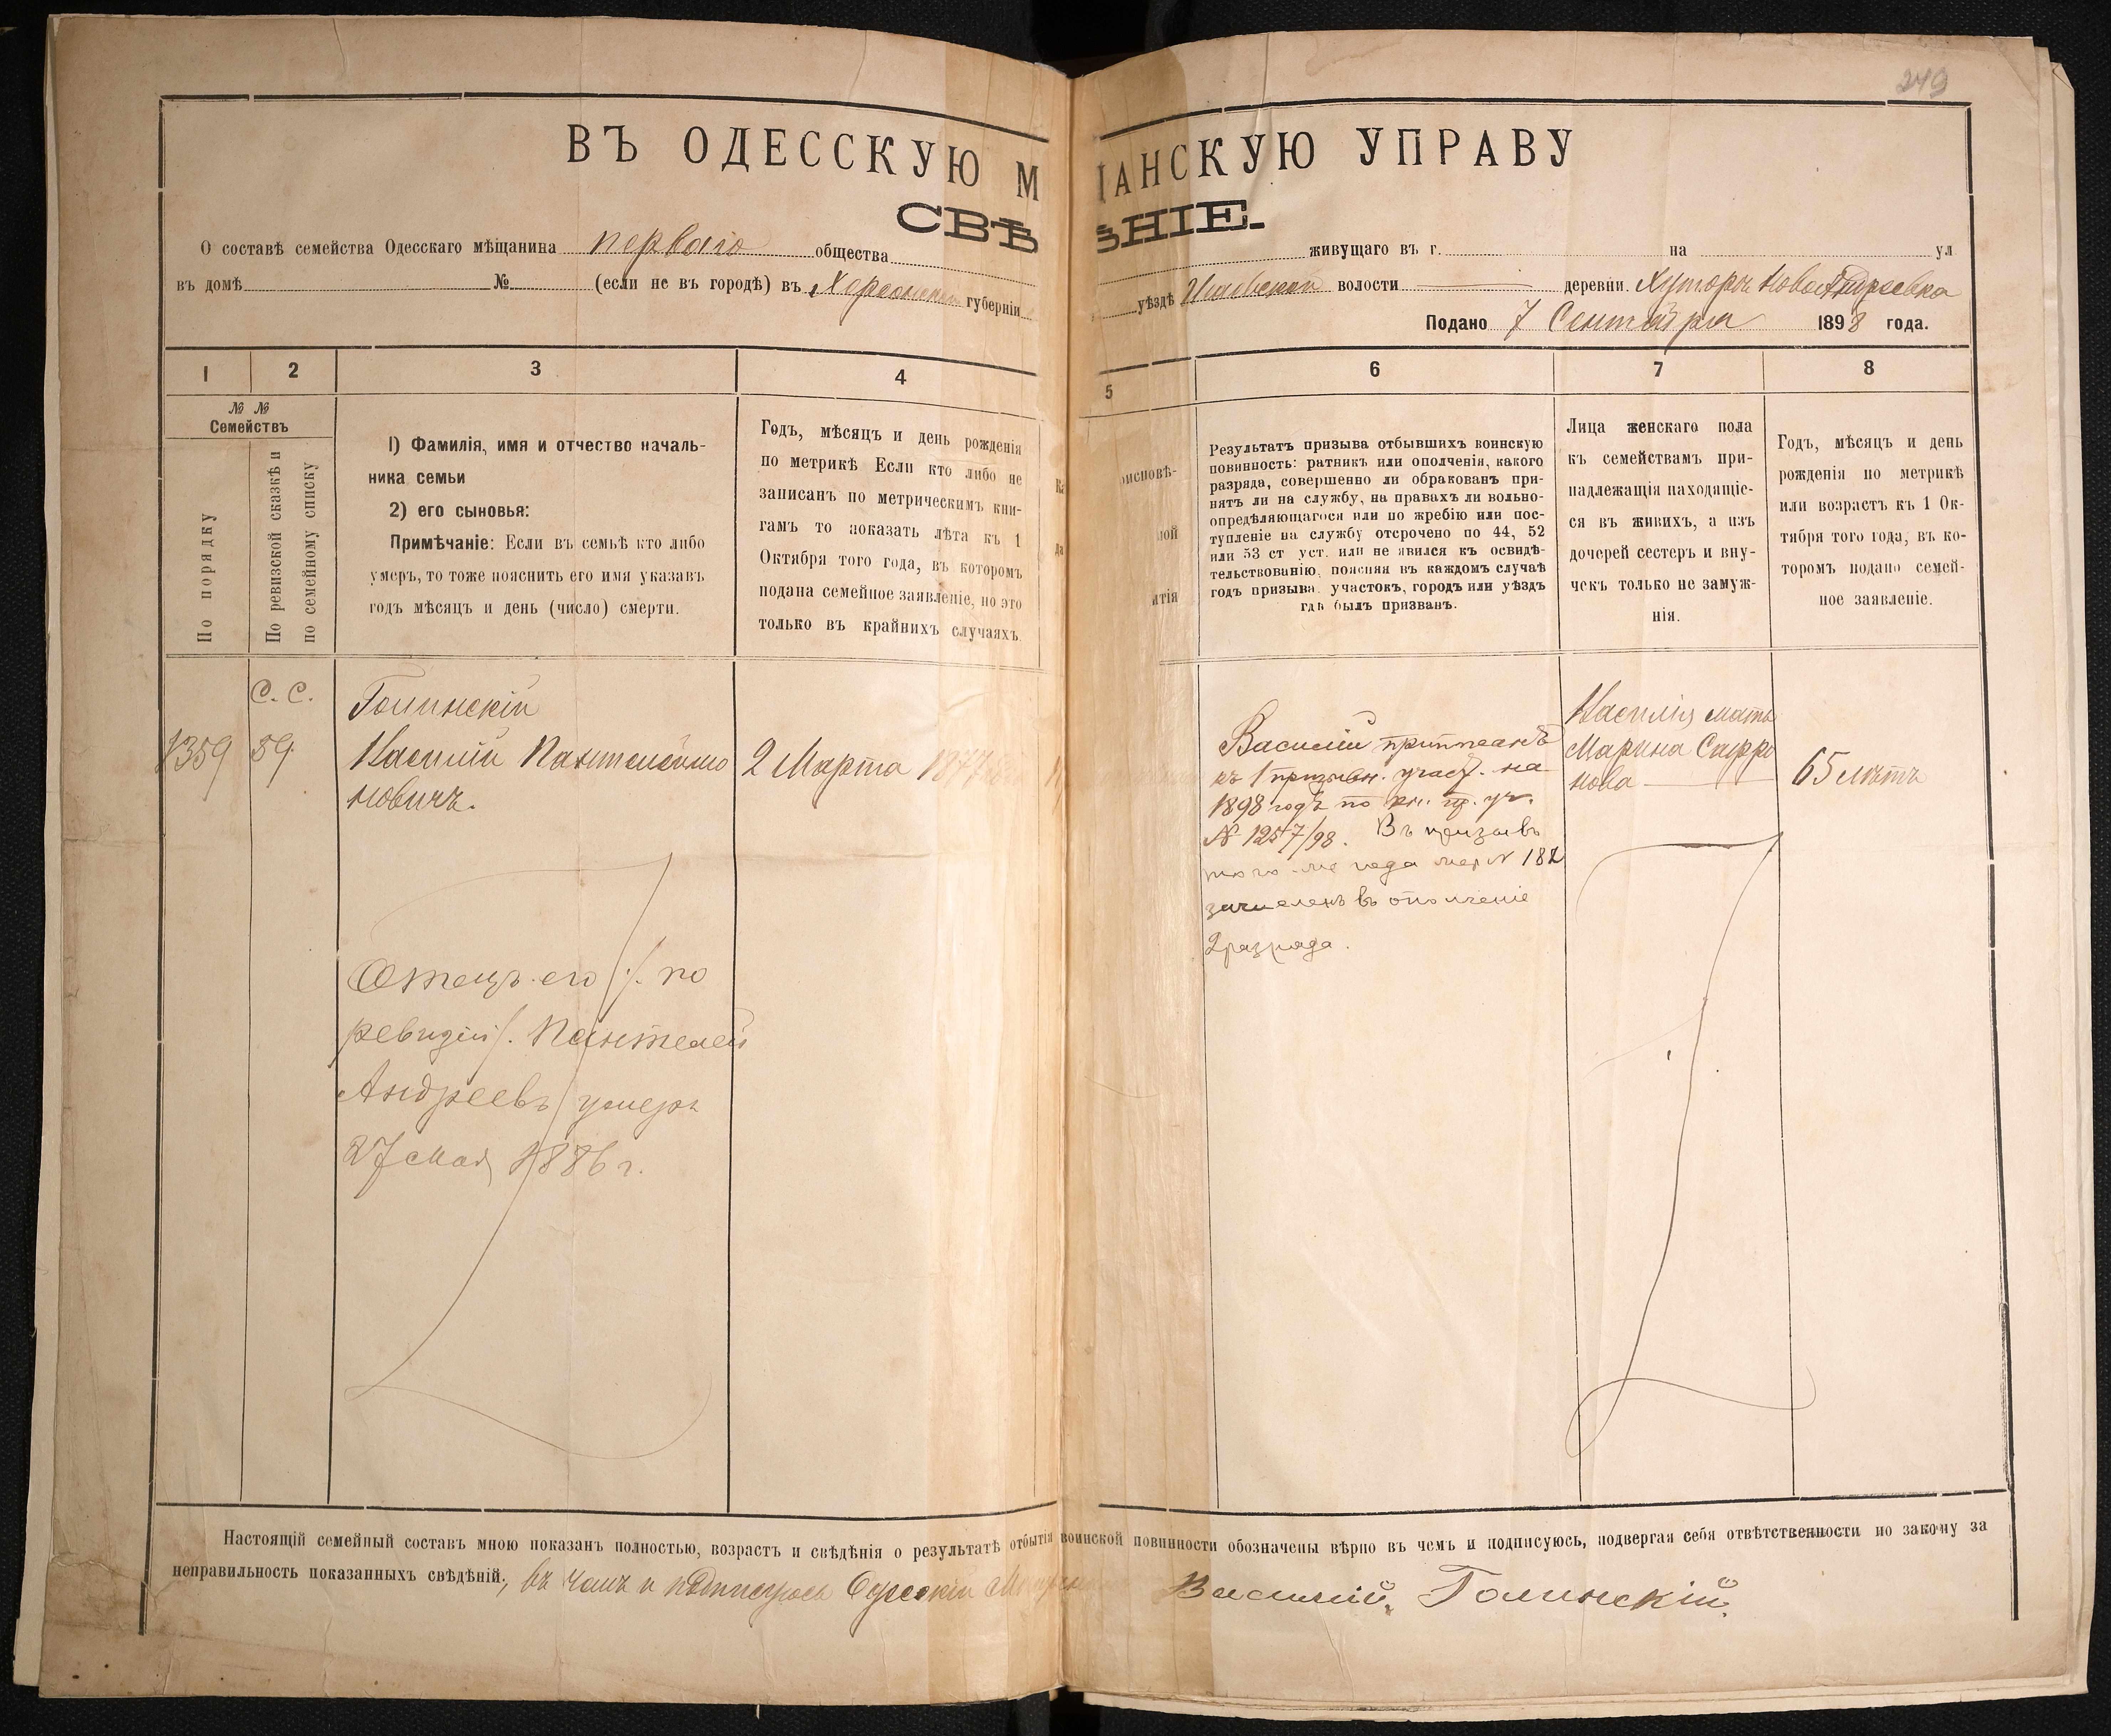 249
ВЪ ОДЕССКУЮ М ЩАНСКУЮ УПРАВУ
СВѢ ѢНІЕ.
О составѣ семейства Одесскаго мѣщанина перваго общества живущаго въ г. на ул
въ домѣ № (если не въ городѣ) въ Херсонской губерніи уѣздѣ волости деревни Хуторъ Ново Андреевка
Подано 7 Сентября 1898 года.
1 2 3 4 5 6 7 8
№ № Семействъ
По порядку
По ревизской сказкѣ и
по семейному списку
1) Фамилія, имя и отчество началь-
ника семьи
2) его сыновья:
Примѣчаніе: Если въ семьѣ кто либо
умеръ, то тоже пояснить его имя указавъ
годъ мѣсяцъ и день (число) смерти.
Годъ, мѣсяцъ и день рожденія
по метрикѣ Если кто либо не
записанъ по метрическимъ кни-
гамъ то показать лѣта къ 1
Октября того года, въ которомъ
подана семейное заявленіе, но это
только въ крайнихъ случаяхъ.
оисповѣ-
ной
итія
Результатъ призыва отбывшихъ воинскую
повинность: ратникъ или ополченія, какого
разряда, совершенно ли обракованъ при-
нятъ ли на службу, на правахъ ли вольно-
опредѣляющагося или по жребію или пос-
тупленіе на службу отсрочено по 44, 52
или 53 ст уст. или не явился къ освидѣ-
тельствованію, поясняя въ каждомъ случаѣ
годъ призыва, участокъ, городъ или уѣздъ
гдѣ былъ призванъ.
Лица женскаго пола
къ семействамъ при-
надлежащія находящіе-
ся въ живихъ, а изъ
дочерей сестеръ и вну-
чекъ только не замуж-
нія.
Годъ, мѣсяцъ и день
рожденія по метрикѣ
или возрастъ къ 1 Ок-
тября того года, въ ко-
торомъ подано семей-
ное заявленіе.
С. С.
1359 59
Голинскій
Василій Пантелеймо
новичъ.
2 Марта 1877
Отецъ его /. по
ревизіи/. Пантелей
Андреевъ умеръ
27 мая 1886 г.
Василій приписанъ
къ 1 призывн. участ. на
1898 годъ по кн. пр. уч.
№ 1257/98. Въ призывъ
того-же года жер № 182
зачисленъ въ ополченіе
2 разряда.
Василія мать
Марина Сафро
нова
65 лѣтъ
Настоящій семейный составъ мною показанъ полностью, возрастъ и свѣдѣнія о результатѣ отбытія воинской повинности обозначены вѣрно въ чемъ и подписуюсь, подвергая себя отвѣтственности по закону за
неправильность показанныхъ свѣдѣній, въ чемъ и подписуюсь Одесскій Василій Голинскій